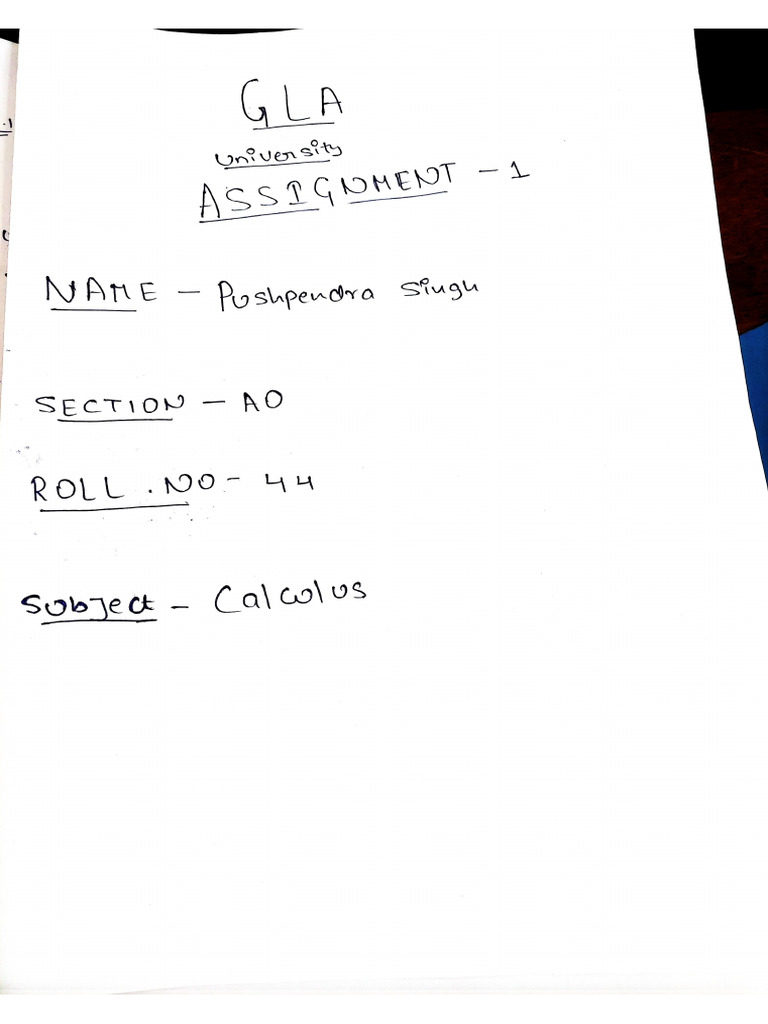 GLA
University
ASSIGNMENT - 1
NAME - Pushpendra Singh
SECTION - AO
ROLL .NO - 44
Subject - Calculus